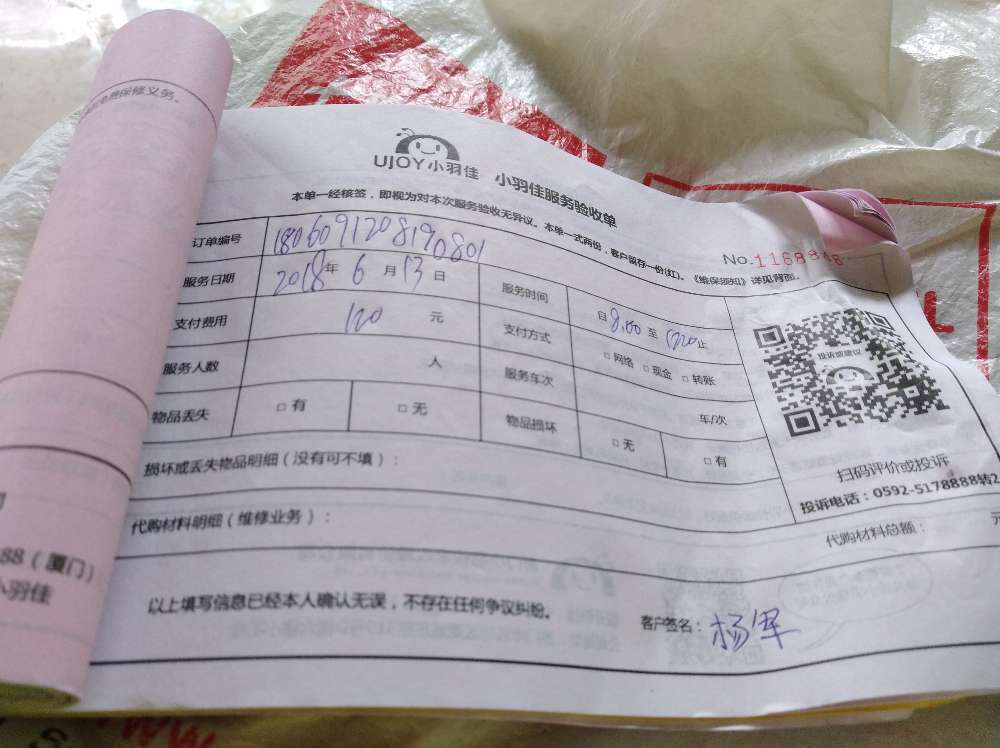 的免费保修义务。
UJOY小羽佳 小羽佳服务验收单
本单一经核签,即视为对本次服务验收无异议。本单一式两份,客户留存一份(红)。《维保须知》详见背面。
No.1168348
订单编号 1806091208190801
服务日期 2018年 6 月 13 日 服务时间 自 8:00 至 1200止
支付费用 120 元 支付方式 □ 网络 □ 现金 □ 转账
服务人数 人 服务车次 车/次
物品丢失 □ 有 □ 无 物品损坏 □ 无 □ 有
投诉或建议
扫码评价或投诉
投诉电话:0592-5178888转2
损坏或丢失物品明细(没有可不填):
代购材料明细(维修业务): 代购材料总额: 元
以上填写信息已经本人确认无误,不存在任何争议纠纷。 客户签名:杨军
88(厦门)
小羽佳